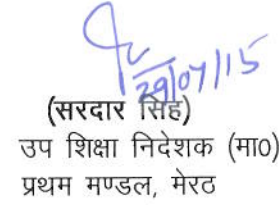 29/07/15
(सरदार सिंह)
उप शिक्षा निदेशक (मा0)
प्रथम मण्डल, मेरठ